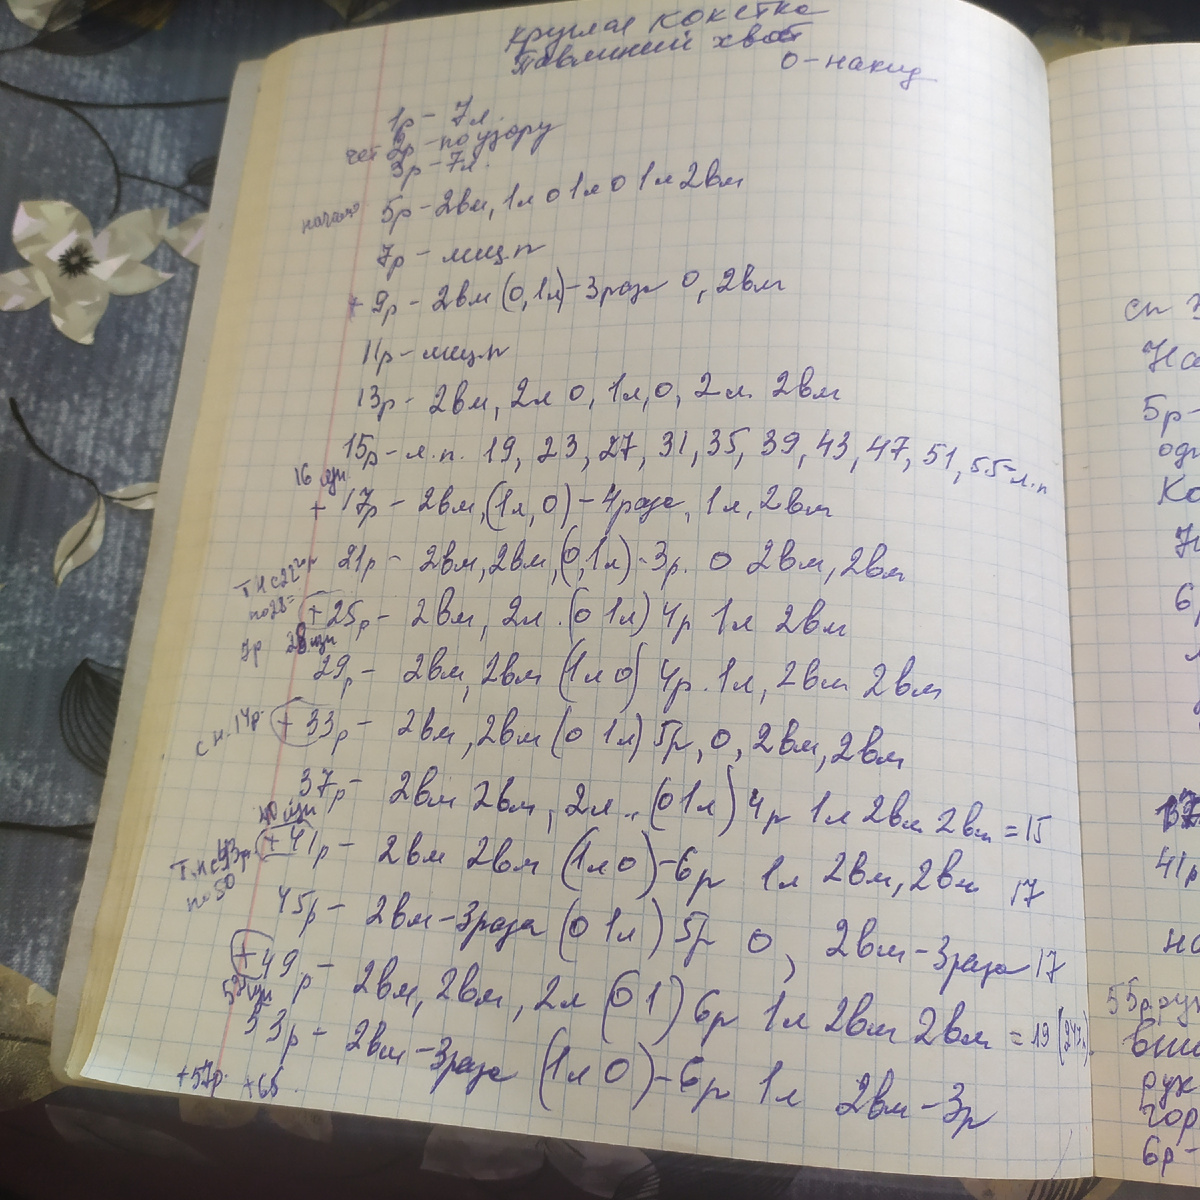 Круглая кокетка
Павлиний хвост
0 - накид
1р - 7л.
чет 2р - по узору
3р - 7л.
начало 5р - 2вм, 1л 0 1л 0 1л 2вм
7р - лиц.п
+ 9р - 2вм (0, 1л) - 3раза 0, 2вм
11р - лиц.п
13р - 2вм, 2л 0, 1л, 0, 2л. 2вм
15р - л.п. 19, 23, 27, 31, 35, 39, 43, 47, 51, 55 - л.п
16
+ 17р - 2вм, (1л, 0) - 4раза, 1л, 2вм
21р - 2вм, 2вм, (0, 1л) - 3р. 0 2вм, 2вм
по 28
+ 25р - 2вм, 2л. (0 1л) 4р 1л 2вм
7р 28
29р - 2вм, 2вм (1л 0) 4р. 1л, 2вм 2вм
с н. 14р. + 33р - 2вм, 2вм (0 1л) 5р, 0, 2вм, 2вм
37р - 2вм 2вм, 2л.. (0 1л) 4р 1л 2вм 2вм = 15
40
+ 41р - 2вм 2вм (1л 0) - 6р 1л 2вм, 2вм 17
по 50
45р - 2вм - 3раза (0 1л) 5р 0, 2вм - 3раза 17
+ 49р - 2вм, 2вм, 2л (0 1) 6р 1л 2вм 2вм = 19
53р - 2вм - 3раза (1л 0) - 6р 1л 2вм - 3р
+57р. +65.
сп
5р -
6р
41р
55р
рук
гор
6р -